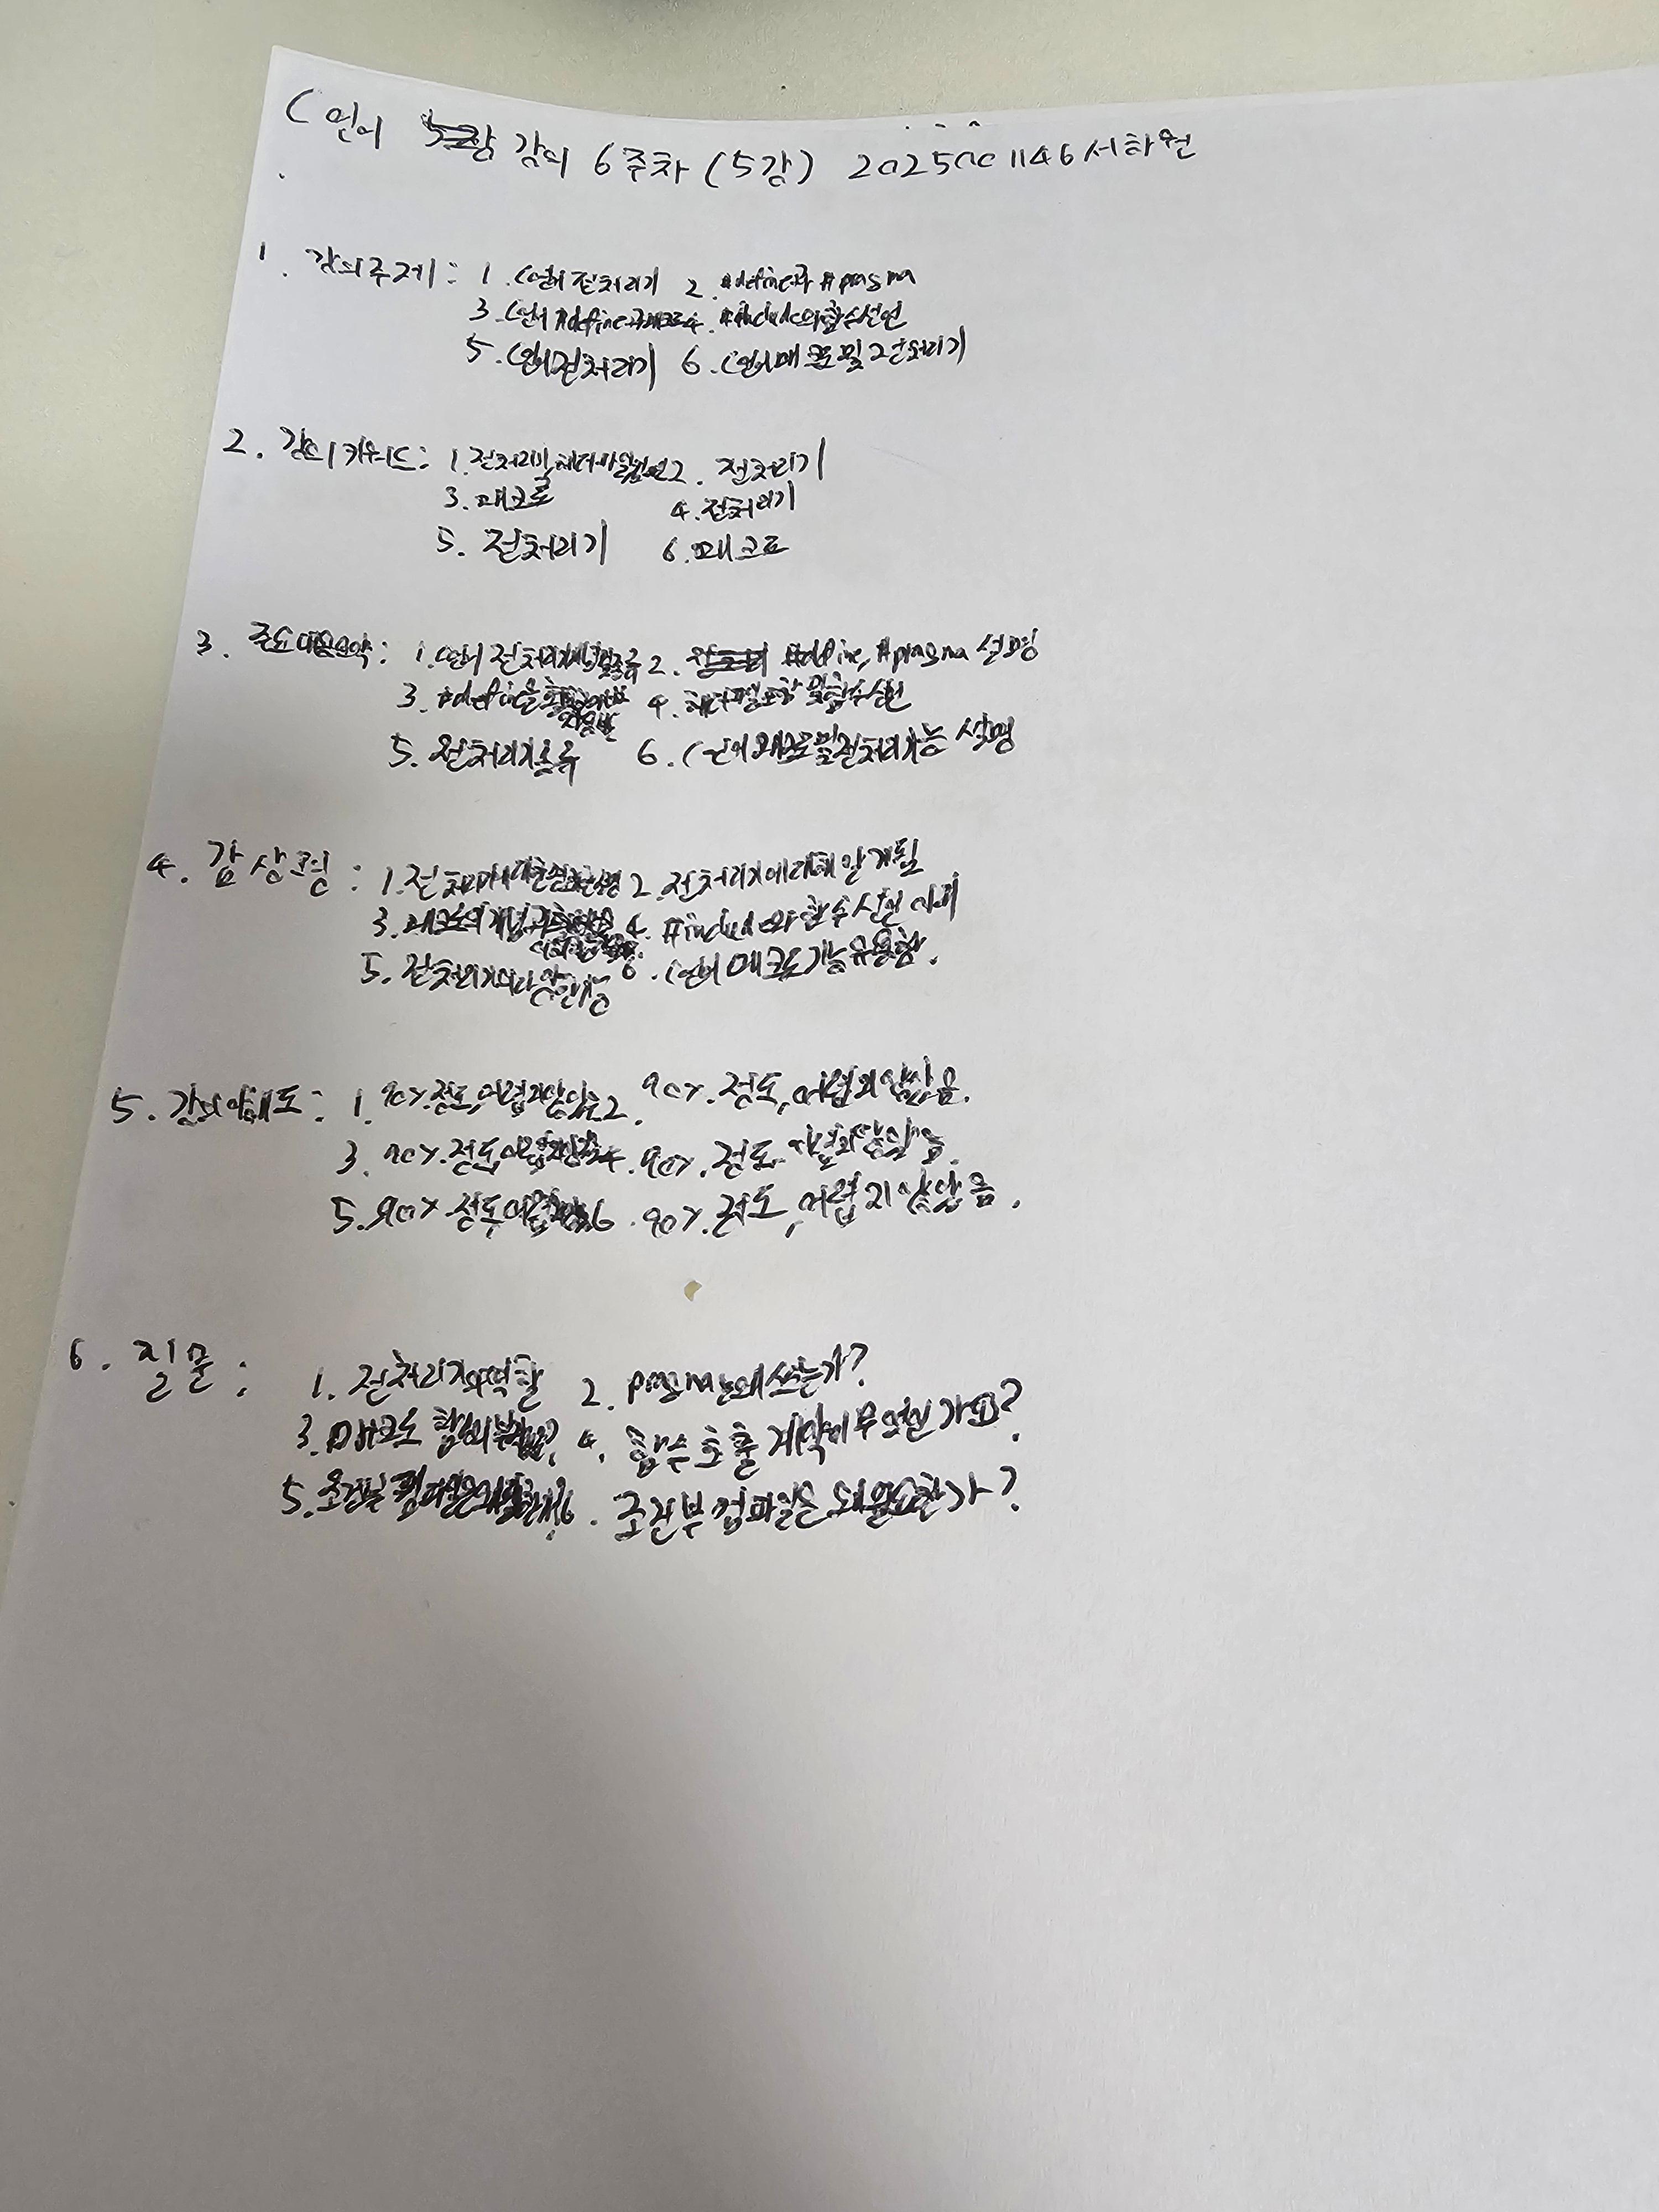 C언어 강의 6주차 (5강) 2025001146 서하원
1. 강의주제: 1. C언어 전처리기 2. #define과 #pragma
3. C언어 #define과 매크로 4. #include와 함수선언
5. C언어전처리기 6. C언어매크로 및 전처리기
2. 강의키워드: 1. 전처리및헤더파일 2. 전처리기
3. 매크로 4. 전처리기
5. 전처리기 6. 매크로
3. 주요내용요약: 1. C언어 전처리기 2. #define, #pragma 설명
3. #define을 4. 헤더파일포함 및 함수선언
5. 전처리기종류 6. C언어매크로및전처리기능 설명
4. 감상평: 1. 전처리기에 대한 2. 전처리기에대해 알게됨
3. 매크로의개념 4. #include와 함수 선언 이해
5. 전처리기의다양한기능 6. C언어 매크로기능유용함.
5. 강의이해도: 1. 90%.정도,어렵지않았음 2. 90%.정도,어렵지않았음.
3. 90%.정도,어렵지않았음 4. 90%.정도 어렵지않았음.
5. 90%.정도,어렵지않았음 6. 90%.정도,어렵지않았음.
6. 질문: 1. 전처리기의역할 2. pragma는왜쓰는가?
3. 매크로 4. 함수호출 계약이무엇인가요?
5. 조건부 컴파일은 6. 조건부 컴파일은 왜필요한가?